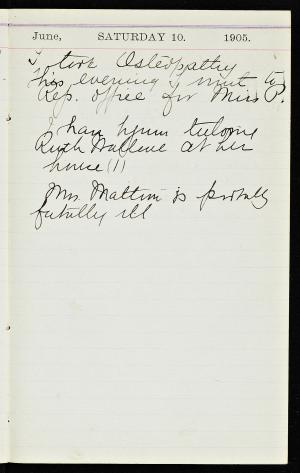 June, SATURDAY 10. 1905.
I took Osteopathy
this evening & went to
Rep. office for Miss P.
I have been tutoring
Ruth Wallace at her
house (1)
Mrs. Mattin is probably
fatally ill